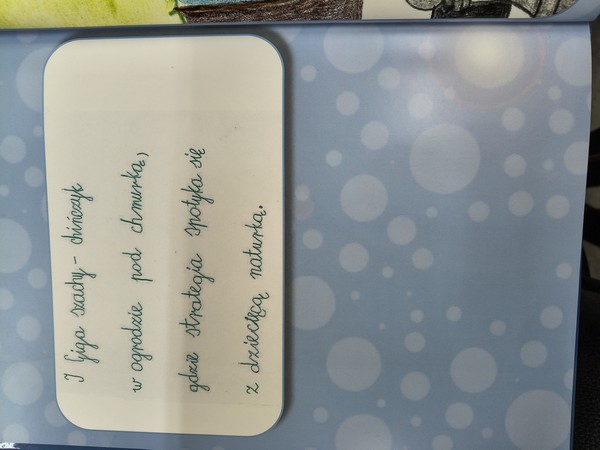 I Giga szachy - chińczyk
w ogrodzie pod chmurką,
gdzie strategia spotyka się
z dziecięcą naturką.